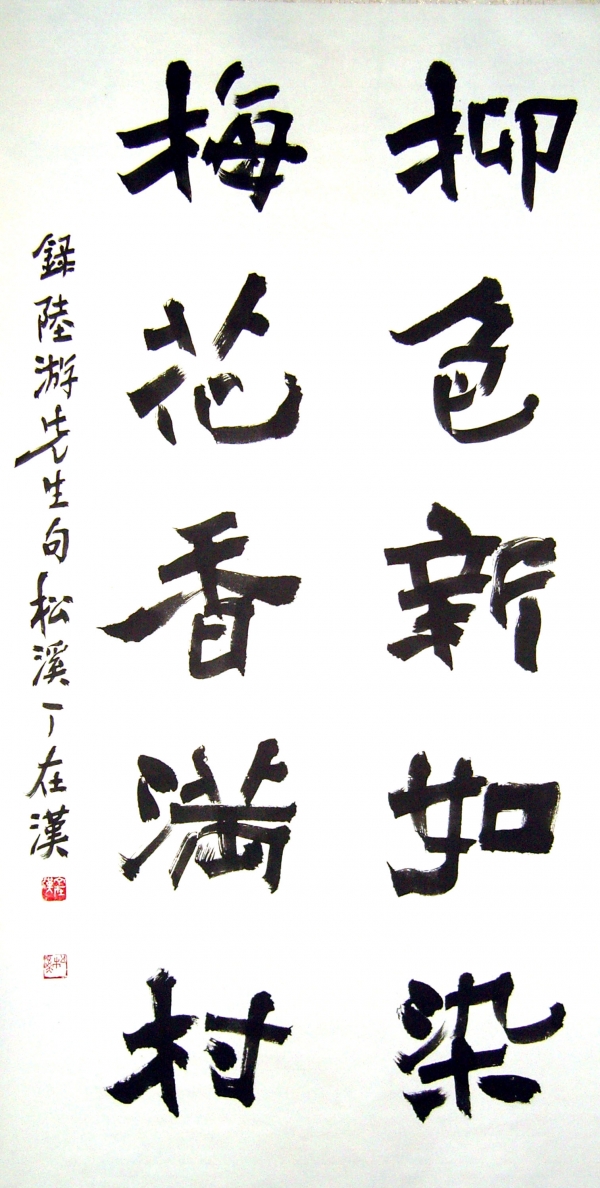 柳色新如染
梅花香满村
録陸游先生句松溪丁在漢
在漢
松溪